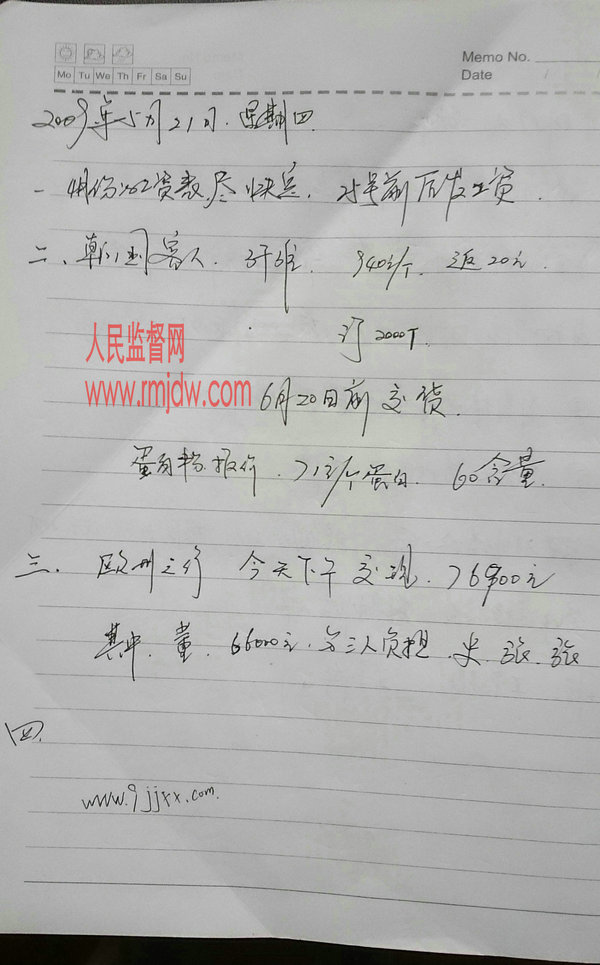 Memo No.
Mo Tu We Th Fr Sa Su
Date / /
2009年5月21日.星期四.
一 4月份的工资表,尽快兑. 25号前后发工资.
二、韩国客人. 纤维. 940元/个. 返20元.
订2000T.
人民监督网
www.rmjdw.com
6月20日前交货.
蛋白粉报价. 71元/个蛋白. 60含量.
三. 欧州之行 今天下午交现. 76900元
其中.董. 66000元. 另三人负担.史.张.张
四.
www.9jjxx.com.